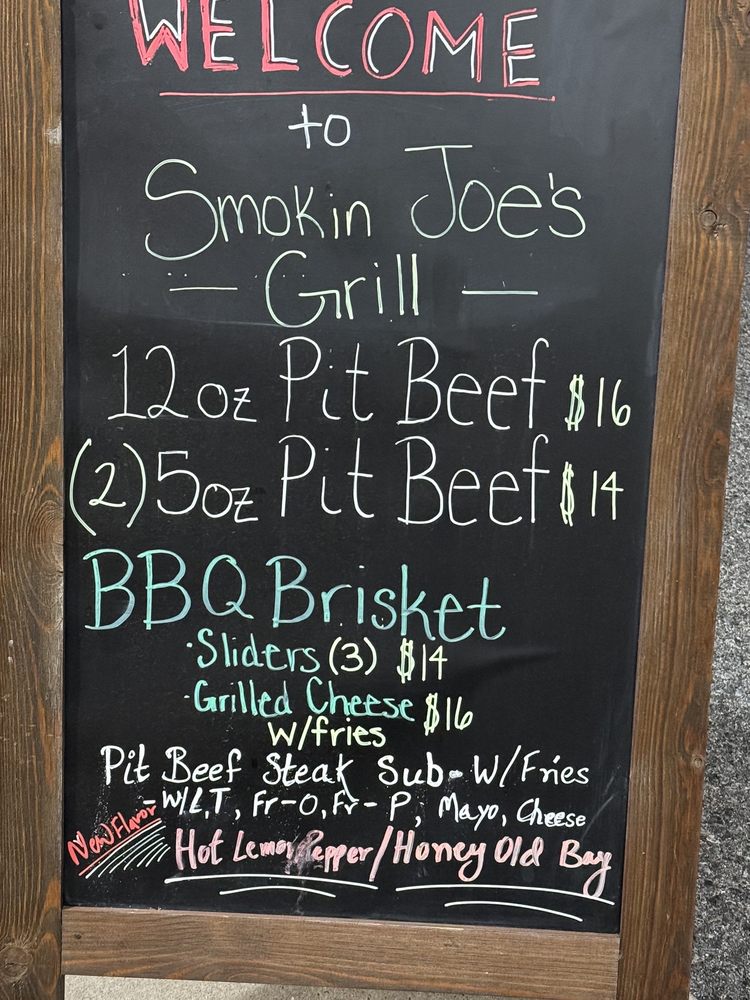 WELCOME
to
Smokin Joe's
— Grill —
12oz Pit Beef $16
(2) 5oz Pit Beef $14
BBQ Brisket
·Sliders (3) $14
·Grilled Cheese $16
W/fries
Pit Beef Steak Sub - W/Fries
- W/L,T, Fr-O, Fr-P, Mayo, Cheese
New Flavor Hot Lemon Pepper/Honey Old Bay